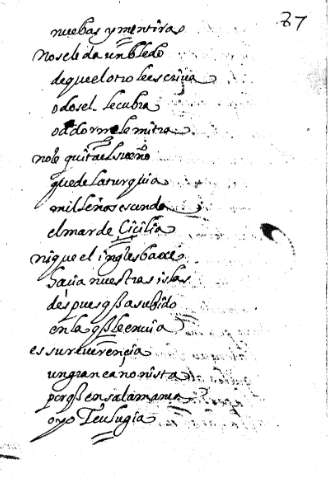 27
nuebas y mentiras
no se le da un bledo
de que el otro le escriua
o dosel le cubra
o adorne le mitra
no le quita el sueño
que de la turquia
mill leños esconda
el mar de Cicilia
ni que el ingles baxe
hacia nuestras islas
despues qß a subido
en la qß le enuia
es su reuerencia
un gran canonista
porqß en salamanca
oyo Teulugia